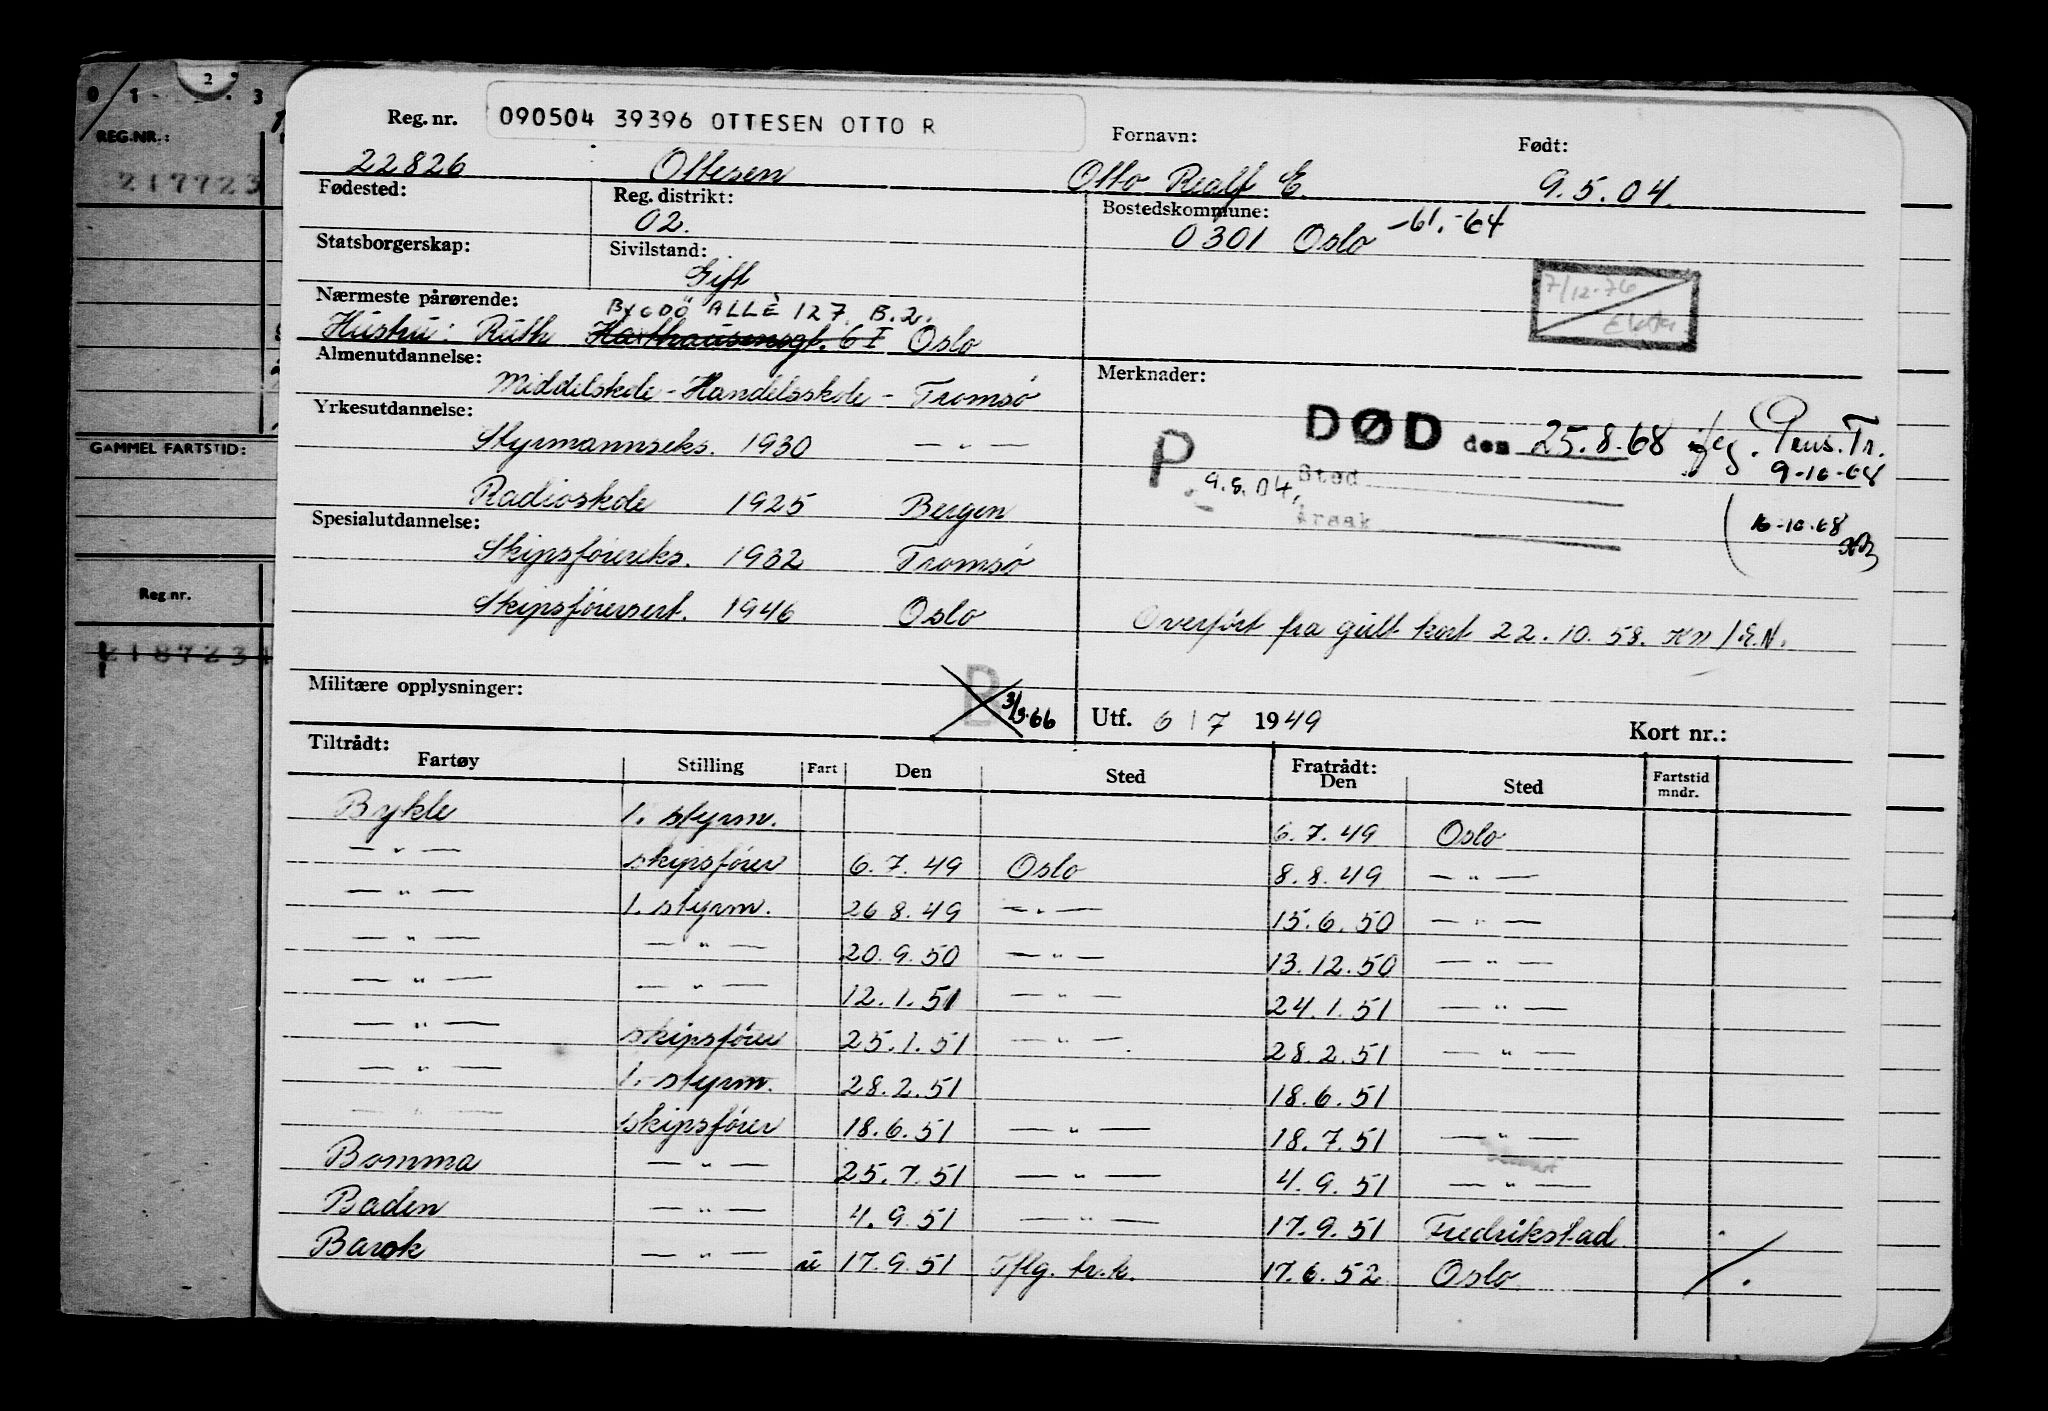 0 1 2 3
REG.NR.:
217723
GAMMEL FARTSTID:
Reg.nr.
218723
Reg. nr. 090504 39396 OTTESEN OTTO R Fornavn: Født:
22826 Ottesen Otto Realf E. 9.5.04.
Fødested: Reg. distrikt: Bostedskommune:
02. 0301 Oslo -61.-64
Statsborgerskap: Sivilstand:
Gift
7/12-76
Nærmeste pårørende: BYGDÖ ALLÈ 127. B.2.
Hustru: Ruth Harthausensgt. 6 I Oslo
Almenutdannelse: Merknader:
Middelskole - Handelsskole - Tromsø
Yrkesutdannelse:
DØD den 25.8.68 Pens.Tr.
9-10-68
Styrmannseks. 1930 — " —
P 9.5.04. Sted
Årsak
Radioskole 1925 Bergen
16-10-68
Spesialutdannelse:
Skipsførereks. 1932 Tromsø
Skipsførersert. 1946 Oslo
Overført fra gult kort 22.10.58. Kn / E.N.
Militære opplysninger: B 3/3-66 Utf. 6 / 7 1949 Kort nr.:
Tiltrådt: Fratrådt:
Fartøy Stilling Fart Den Sted Den Sted Fartstid mndr.
Bykle 1. styrm. 6.7.49 Oslo
— " — skipsfører 6.7.49 Oslo 8.8.49 — " —
— " — 1. styrm. 26.8.49 — " — 15.6.50 — " —
— " — — " — 20.9.50 — " — 13.12.50 — " —
— " — — " — 12.1.51 — " — 24.1.51 — " —
— " — skipsfører 25.1.51 — " — 28.2.51 — " —
— " — 1. styrm. 28.2.51 18.6.51
— " — skipsfører 18.6.51 — " — 18.7.51 — " —
Bomma — " — 25.7.51 — " — 4.9.51 — " —
Baden — " — 4.9.51 — " — 17.9.51 Fredrikstad
Barok — " — u 17.9.51 Iflg. tr.k. 17.6.52 Oslo